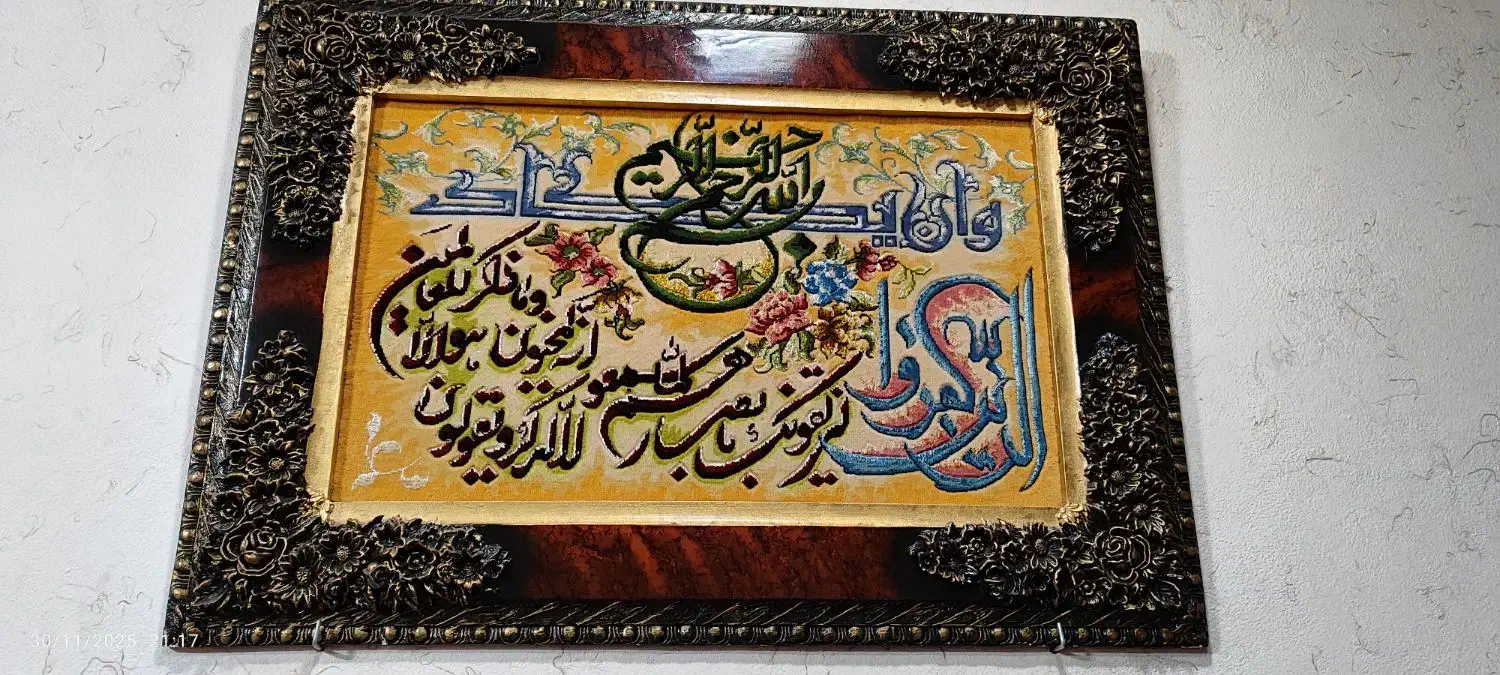 بسم الله الرحمن الرحیم
وان یکاد
الذین کفروا
لیزلقونک بابصارهم لما سمعوا
الذکر ویقولون
انه لمجنون وما هو الا
ذکر للعالمین
30/11/2025 21:17